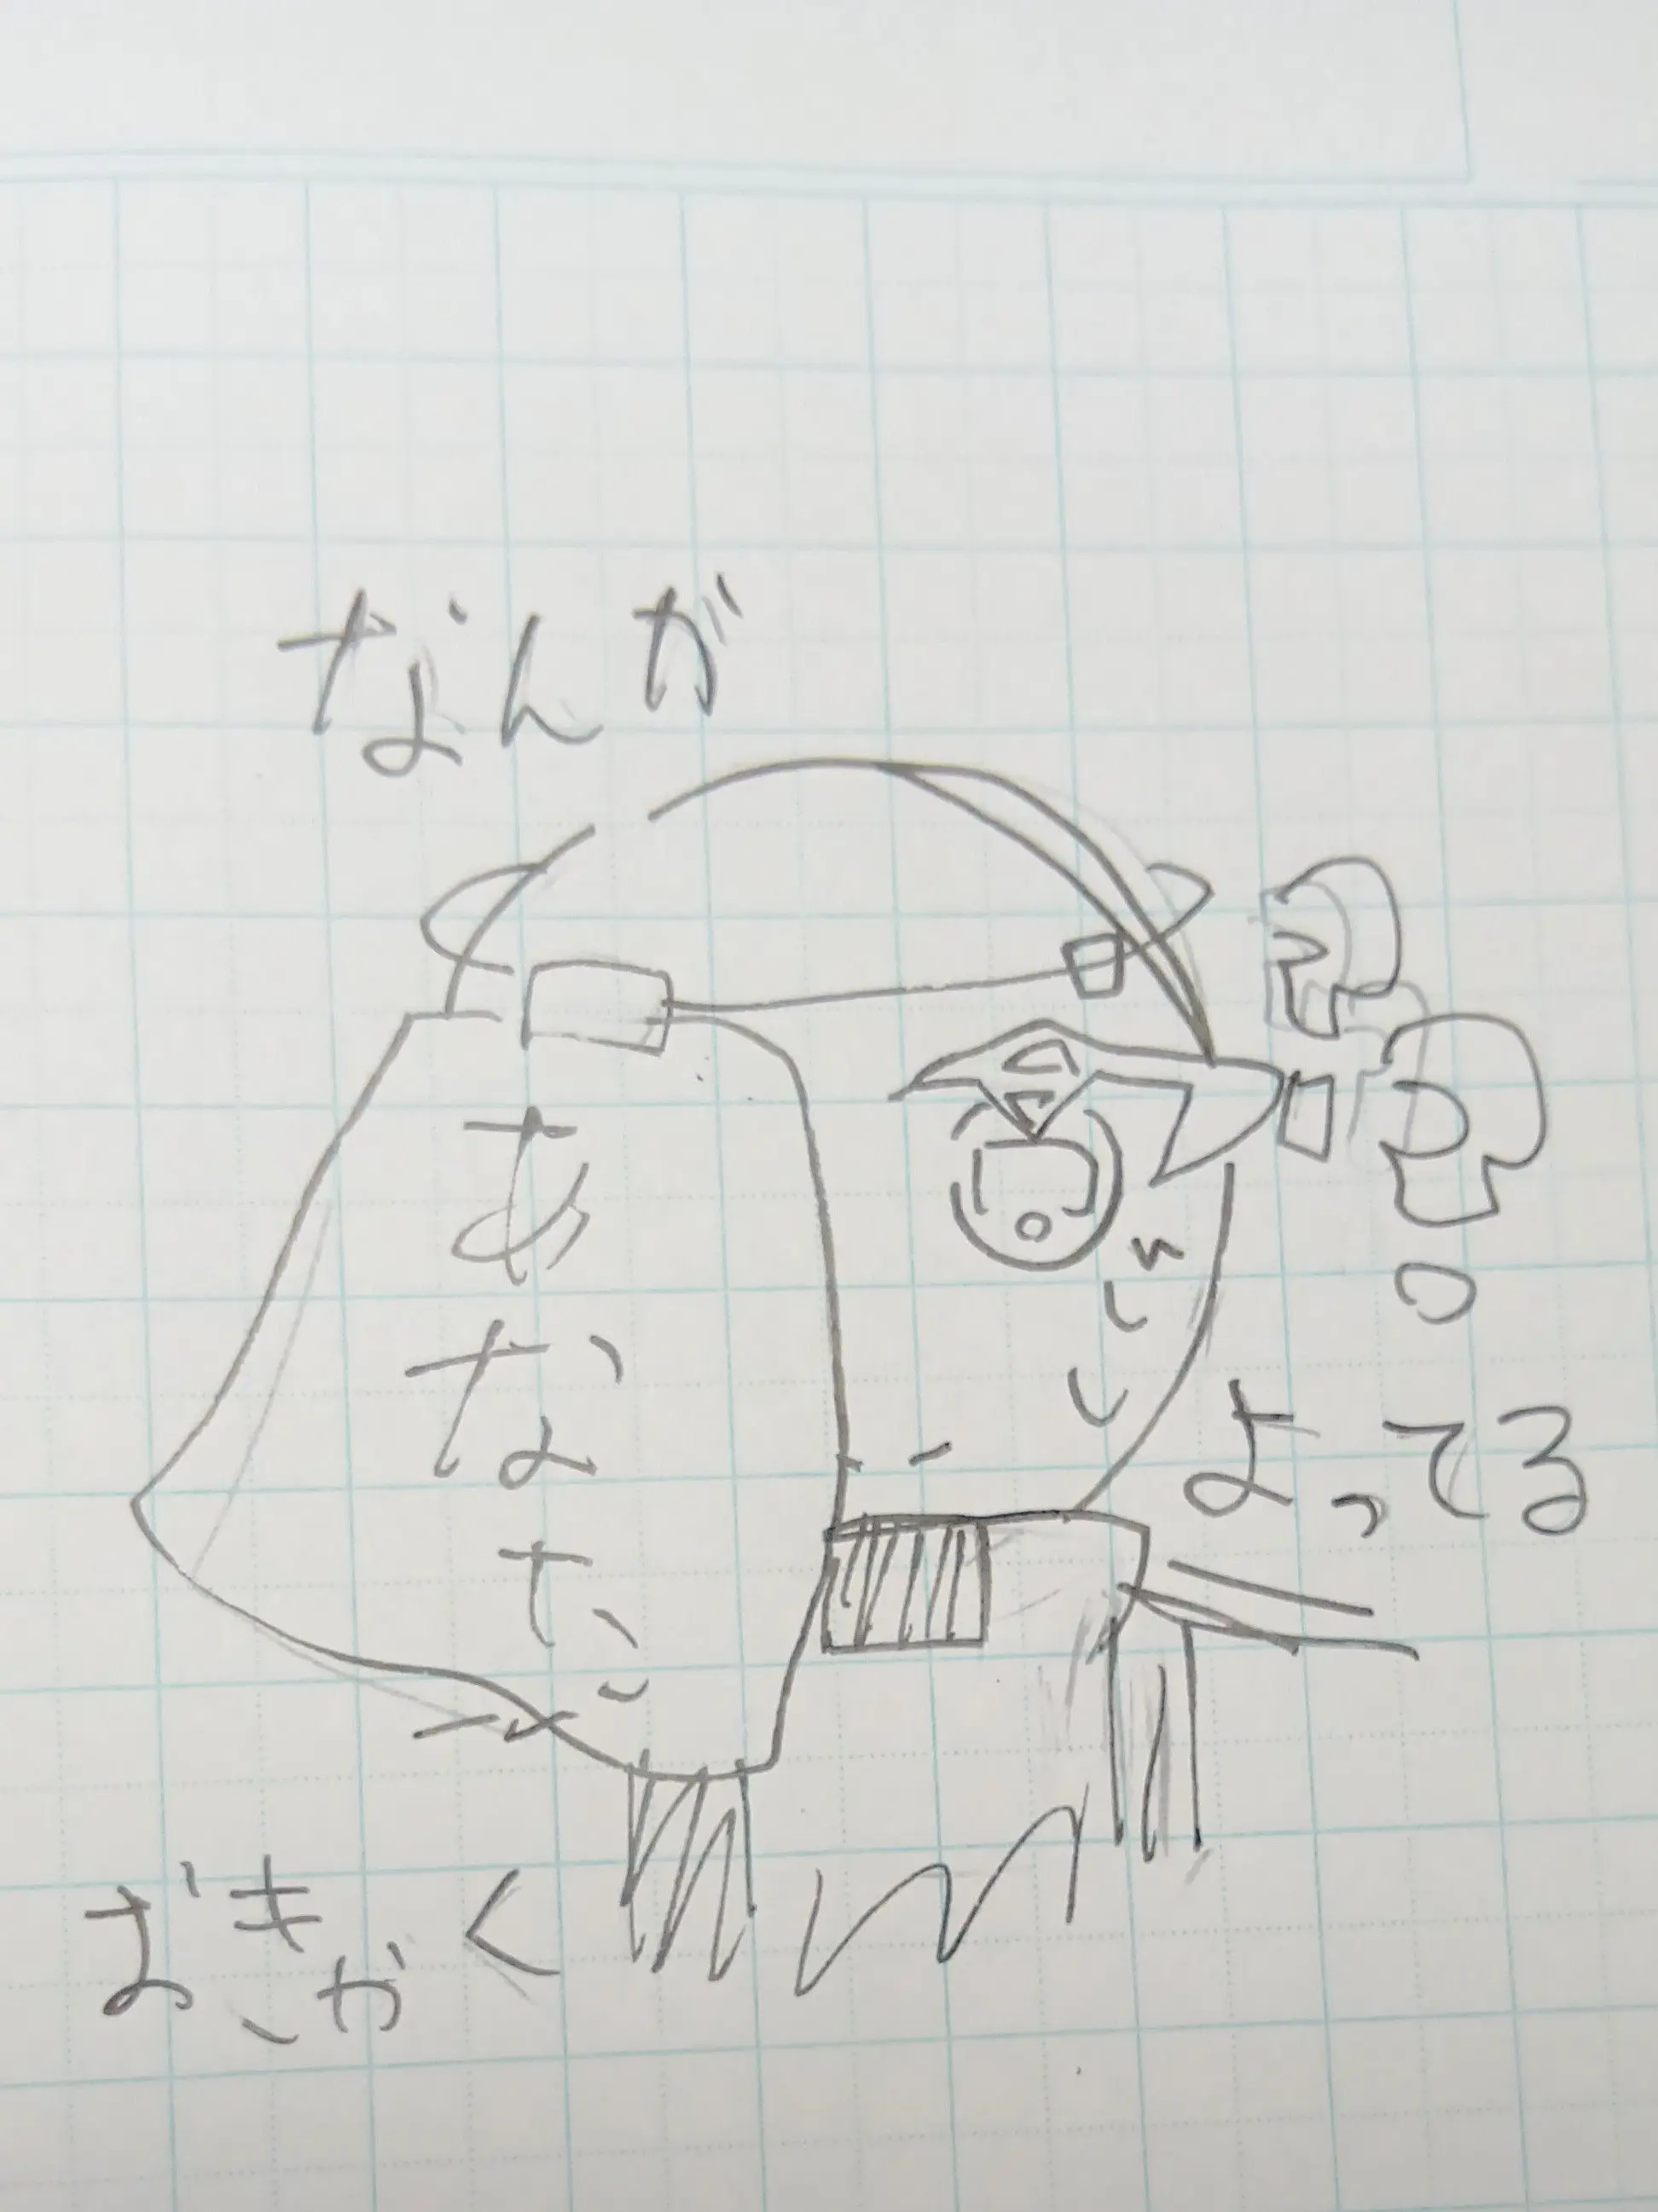 なんか
あなた
よってる
おきがく